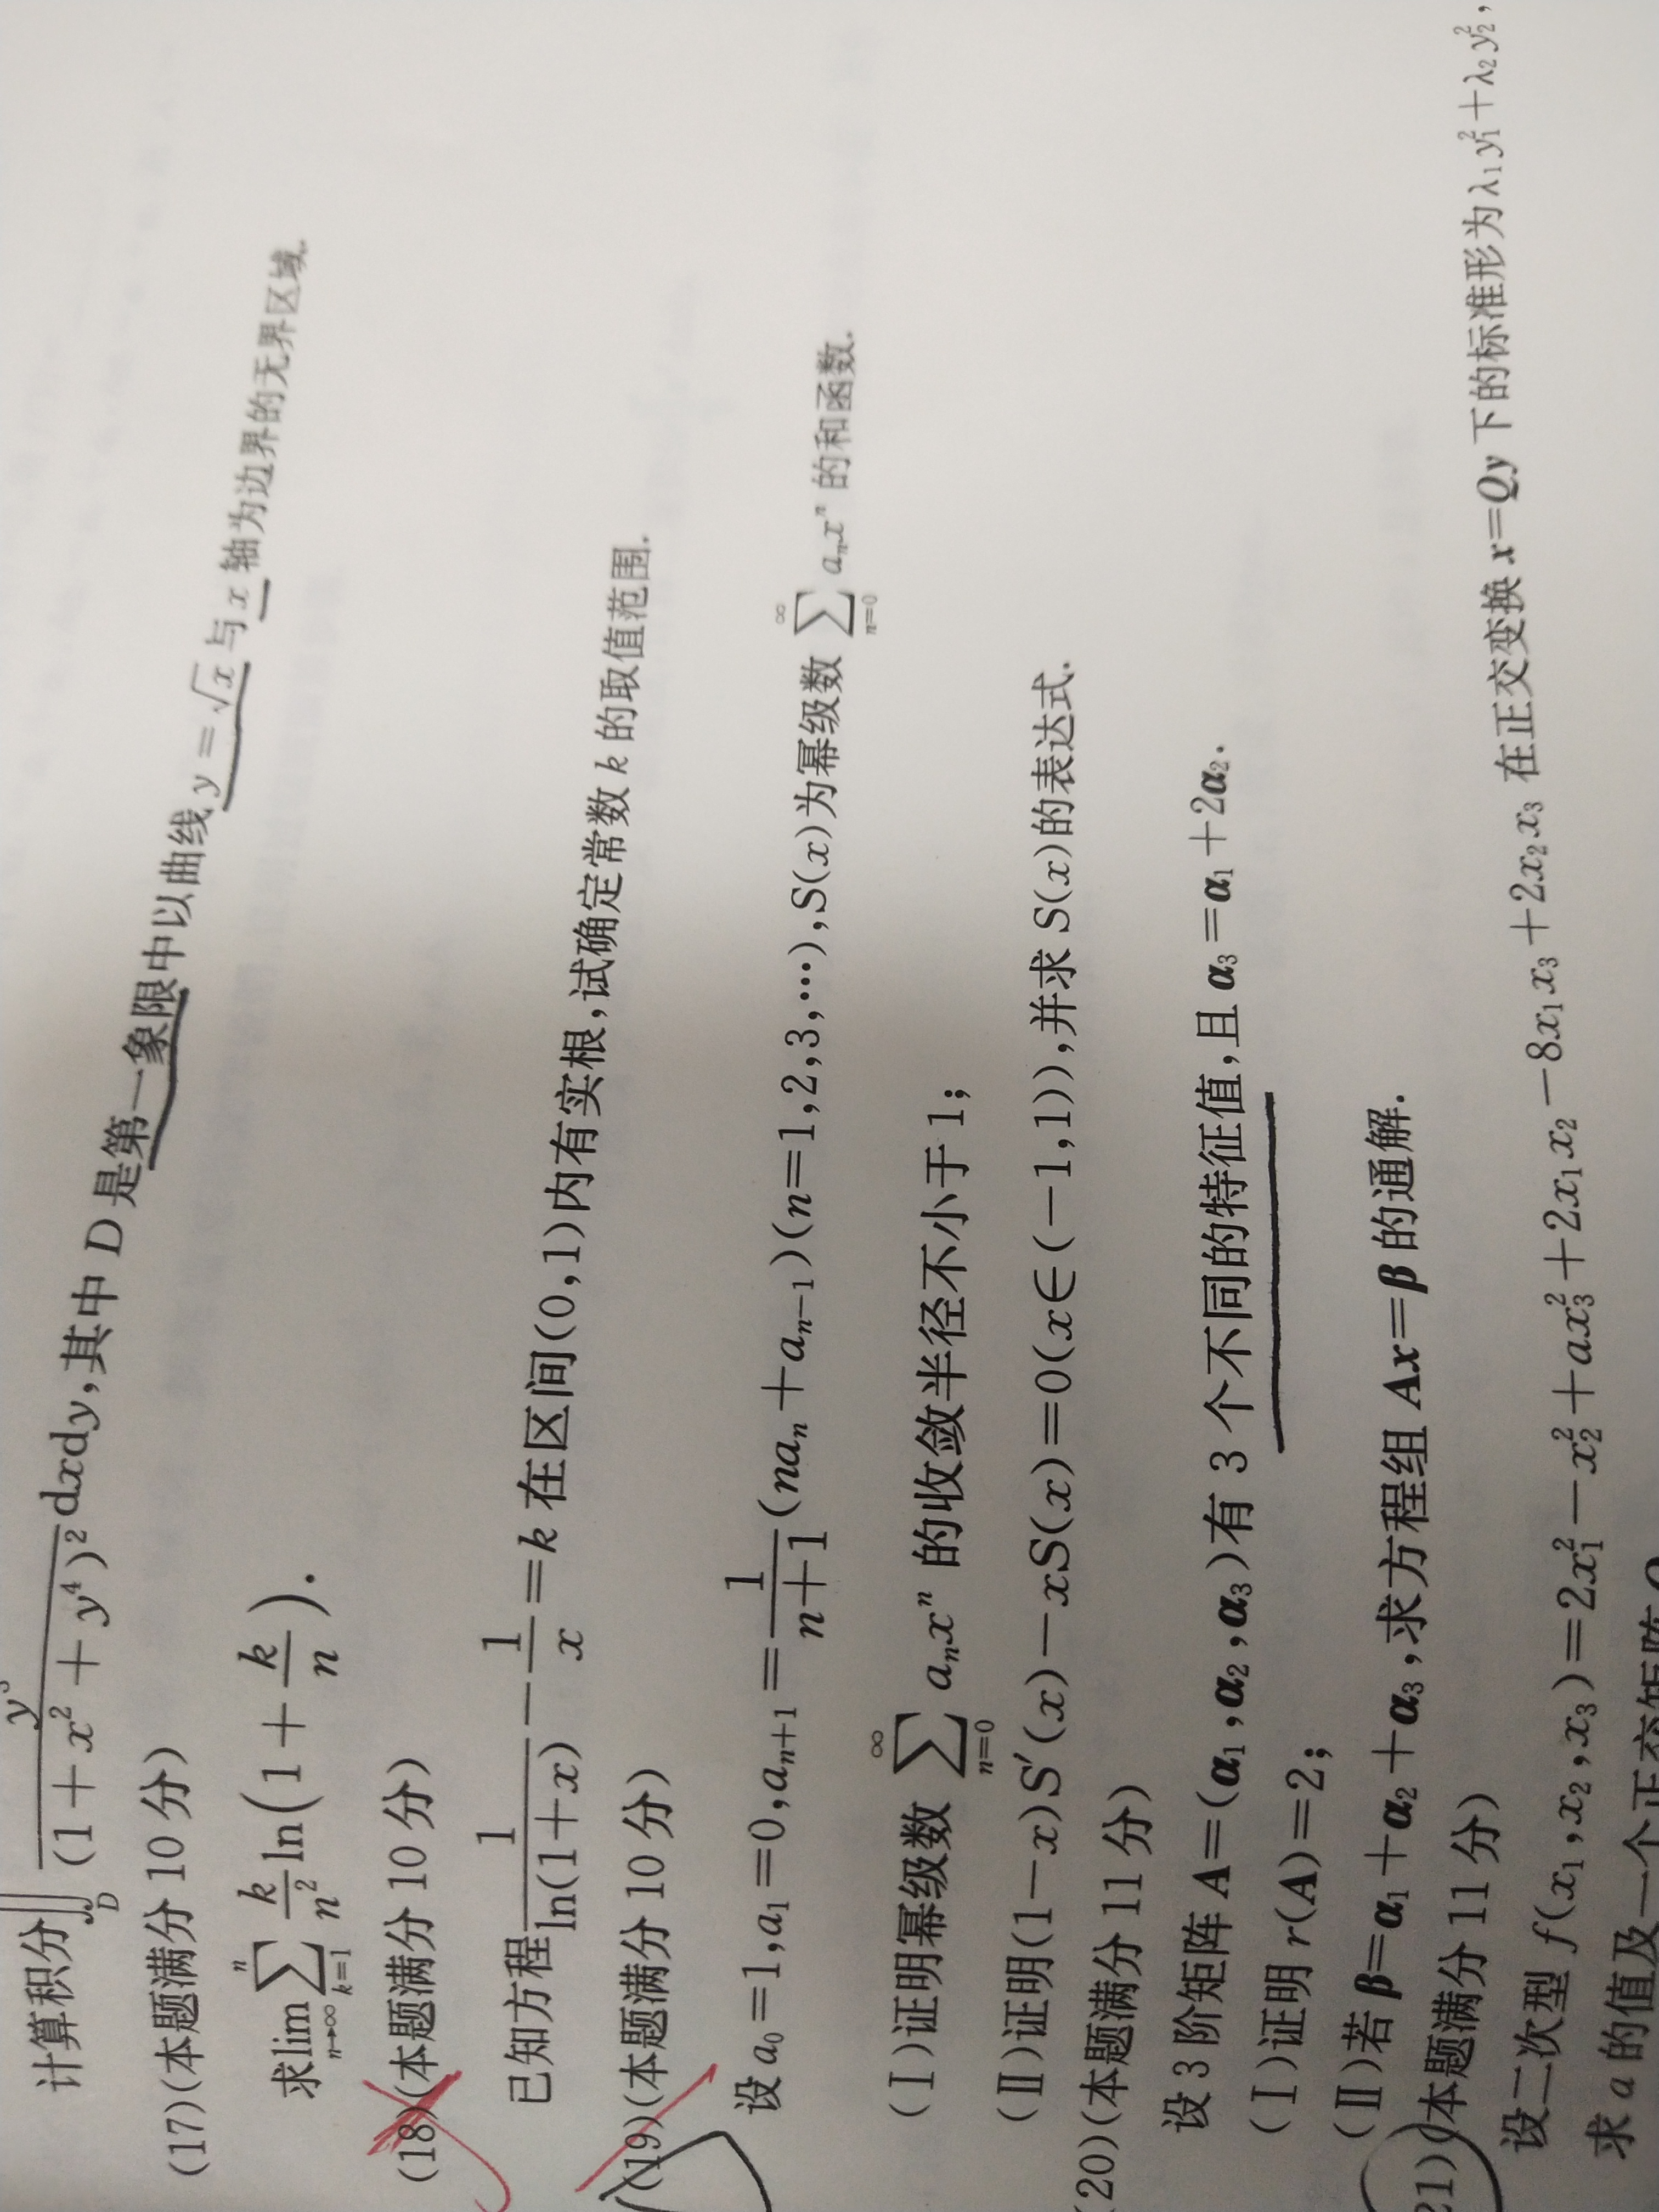 计算积分∬_D y³/(1+x²+y⁴)² dxdy,其中 D 是第一象限中以曲线 y=√x 与 x 轴为边界的无界区域.
(17)(本题满分 10 分)
求lim_{n→∞} ∑_{k=1}^{n} k/n² ln(1+k/n).
(18)(本题满分 10 分)
已知方程 1/ln(1+x) − 1/x = k 在区间(0,1)内有实根,试确定常数 k 的取值范围.
(19)(本题满分 10 分)
设 a₀=1,a₁=0,aₙ₊₁=1/(n+1)(naₙ+aₙ₋₁)(n=1,2,3,⋯),S(x)为幂级数 ∑_{n=0}^{∞} aₙxⁿ 的和函数.
(Ⅰ)证明幂级数 ∑_{n=0}^{∞} aₙxⁿ 的收敛半径不小于 1;
(Ⅱ)证明(1−x)S′(x)−xS(x)=0(x∈(−1,1)),并求 S(x)的表达式.
(20)(本题满分 11 分)
设 3 阶矩阵 A=(α₁,α₂,α₃)有 3 个不同的特征值,且 α₃=α₁+2α₂.
(Ⅰ)证明 r(A)=2;
(Ⅱ)若 β=α₁+α₂+α₃,求方程组 Ax=β 的通解.
21)(本题满分 11 分)
设二次型 f(x₁,x₂,x₃)=2x₁²−x₂²+ax₃²+2x₁x₂−8x₁x₃+2x₂x₃ 在正交变换 x=Qy 下的标准形为 λ₁y₁²+λ₂y₂²,
求 a 的值及一个正交矩阵 Q